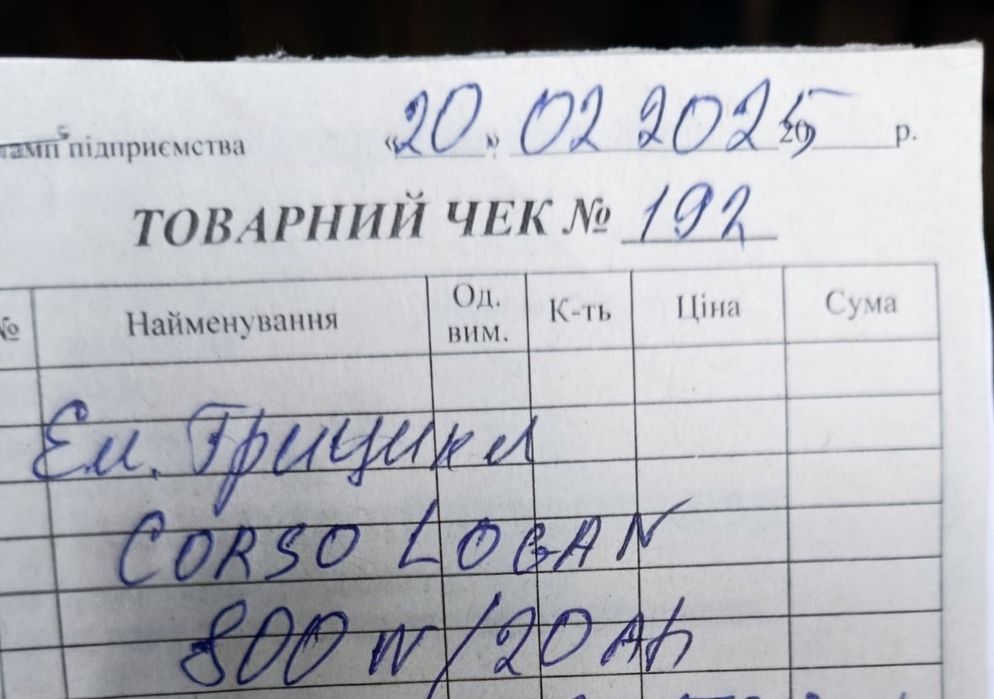 тамп підприємства «20» 02 2025 20 р.
ТОВАРНИЙ ЧЕК № 192
№ Найменування Од. вим. К-ть Ціна Сума
Ел. Трицикл
CORSO LOGAN
800 W/20 Ah